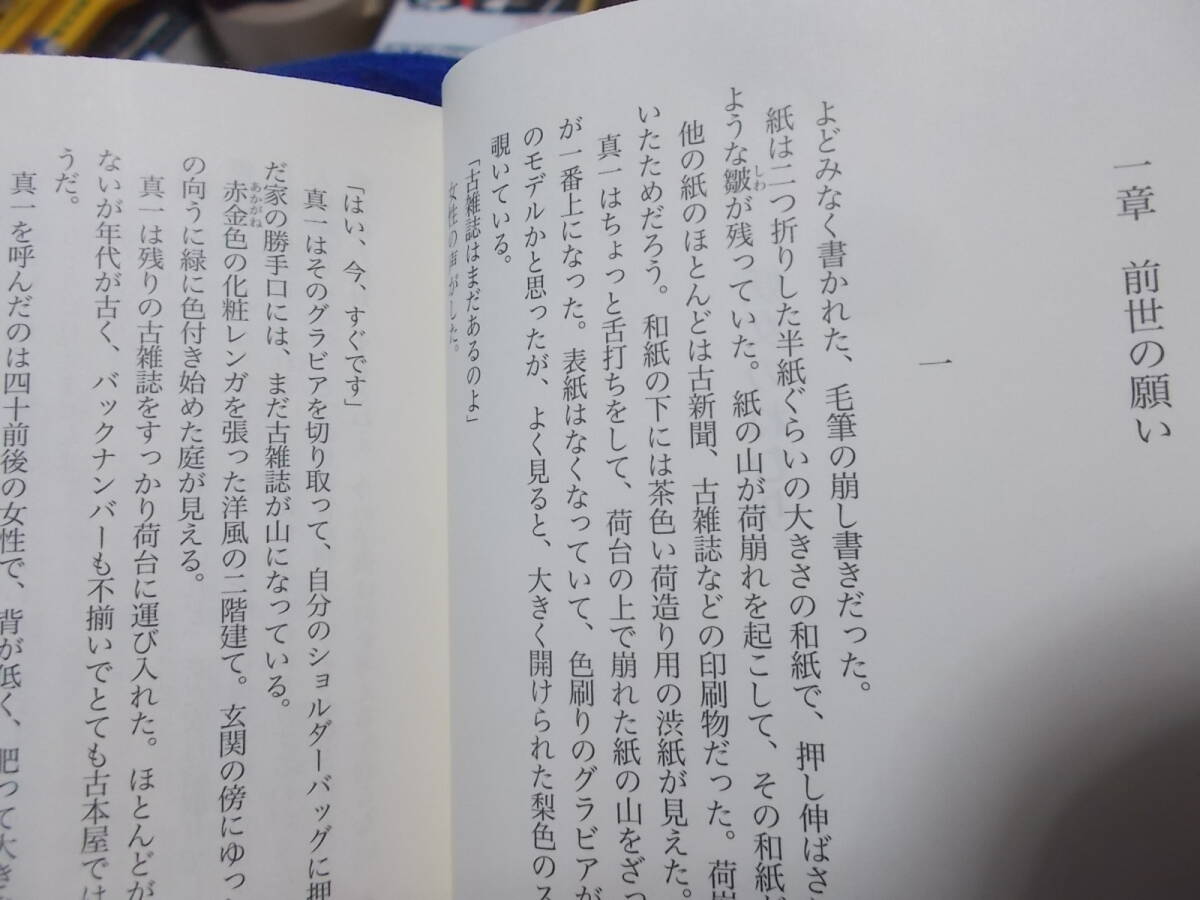 一章　前世の願い
一
よどみなく書かれた、毛筆の崩し書きだった。
紙は二つ折りした半紙ぐらいの大きさの和紙で、押し伸ばさ
ような皺が残っていた。紙の山が荷崩れを起こして、その和紙が
しわ
他の紙のほとんどは古新聞、古雑誌などの印刷物だった。荷崩
いたためだろう。和紙の下には茶色い荷造り用の渋紙が見えた。
真一はちょっと舌打ちをして、荷台の上で崩れた紙の山をざっ
が一番上になった。表紙はなくなっていて、色刷りのグラビアが
のモデルかと思ったが、よく見ると、大きく開けられた梨色のス
覗いている。
「古雑誌はまだあるのよ」
女性の声がした。
「はい、今、すぐです」
真一はそのグラビアを切り取って、自分のショルダーバッグに押
だ家の勝手口には、まだ古雑誌が山になっている。
赤金色の化粧レンガを張った洋風の二階建て。玄関の傍にゆっ
あかがね
の向うに緑に色付き始めた庭が見える。
真一は残りの古雑誌をすっかり荷台に運び入れた。ほとんどが
ないが年代が古く、バックナンバーも不揃いでとても古本屋では
うだ。
真一を呼んだのは四十前後の女性で、背が低く、肥って大き